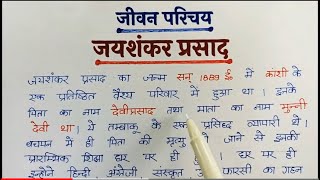 जीवन परिचय
जयशंकर प्रसाद
जयशंकर प्रसाद का जन्म सन् 1889 ई० में काशी के
एक प्रतिष्ठित वैश्य परिवार में हुआ था। इनके
पिता का नाम देवीप्रसाद तथा माता का नाम मुन्नी
देवी था। ये तम्बाकू के एक प्रसिद्ध व्यापारी थे।
बचपन में ही पिता की मृत्यु हो जाने से इनकी
प्रारम्भिक शिक्षा घर पर ही हुई। घर पर ही
इन्होंने हिन्दी अंग्रेजी संस्कृत फारसी का गहन